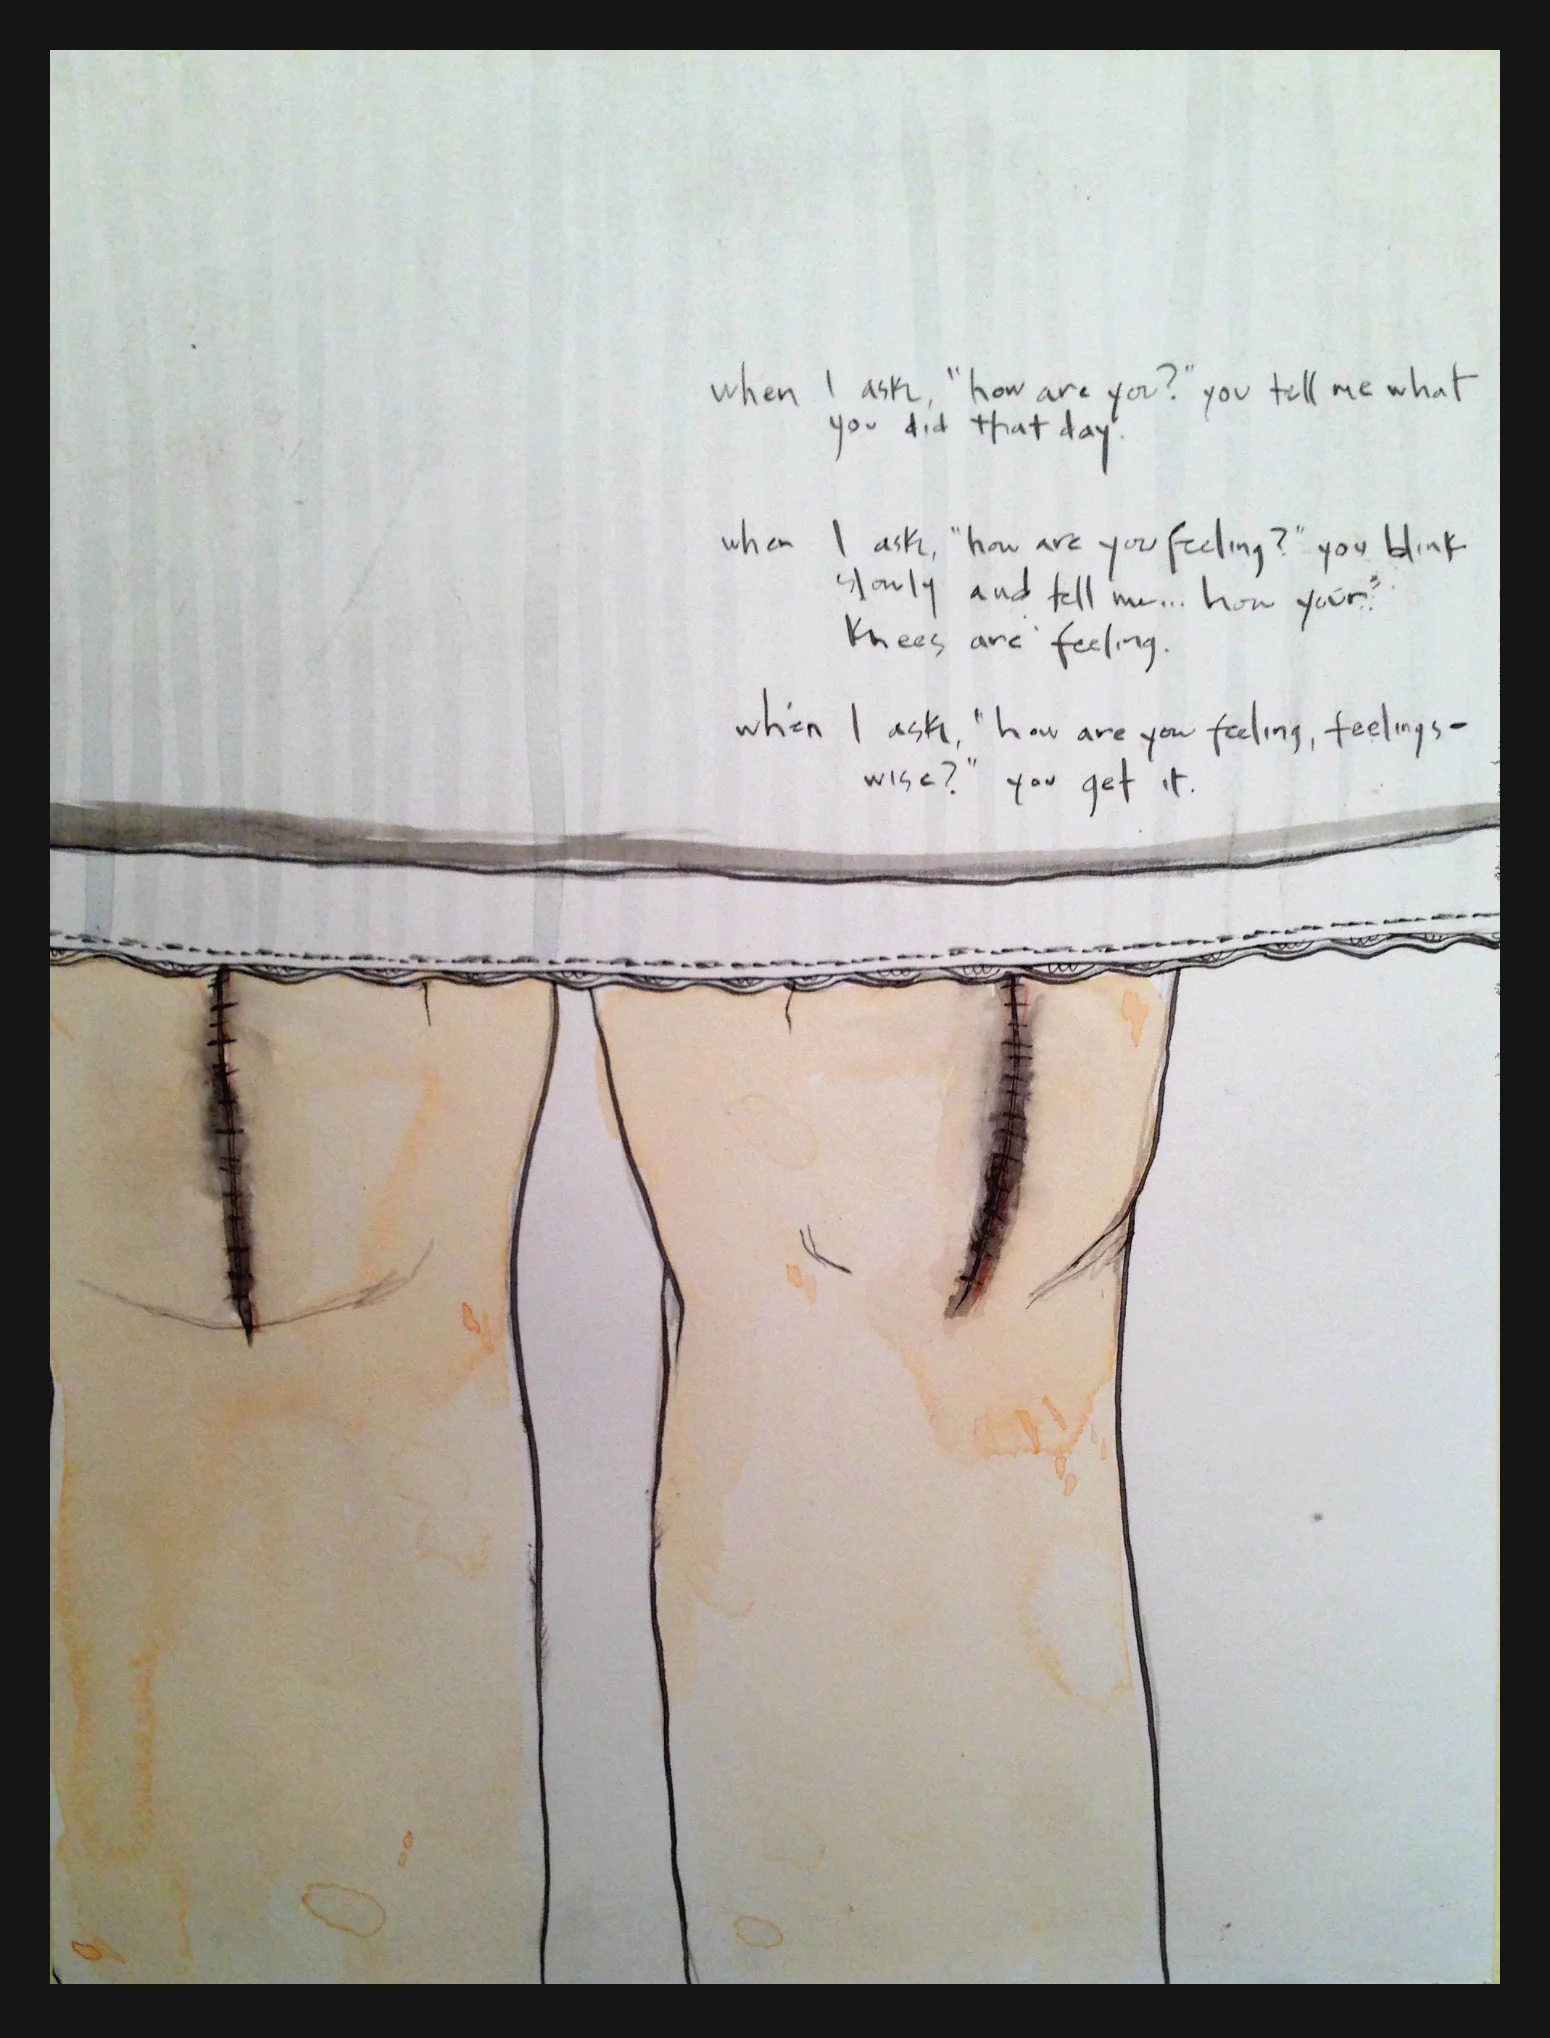 when I ask, "how are you?" you tell me what
you did that day.
when I ask, "how are you feeling?" you blink
slowly and tell me... how your
knees are feeling.
when I ask, "how are you feeling, feelings-
wise?" you get it.